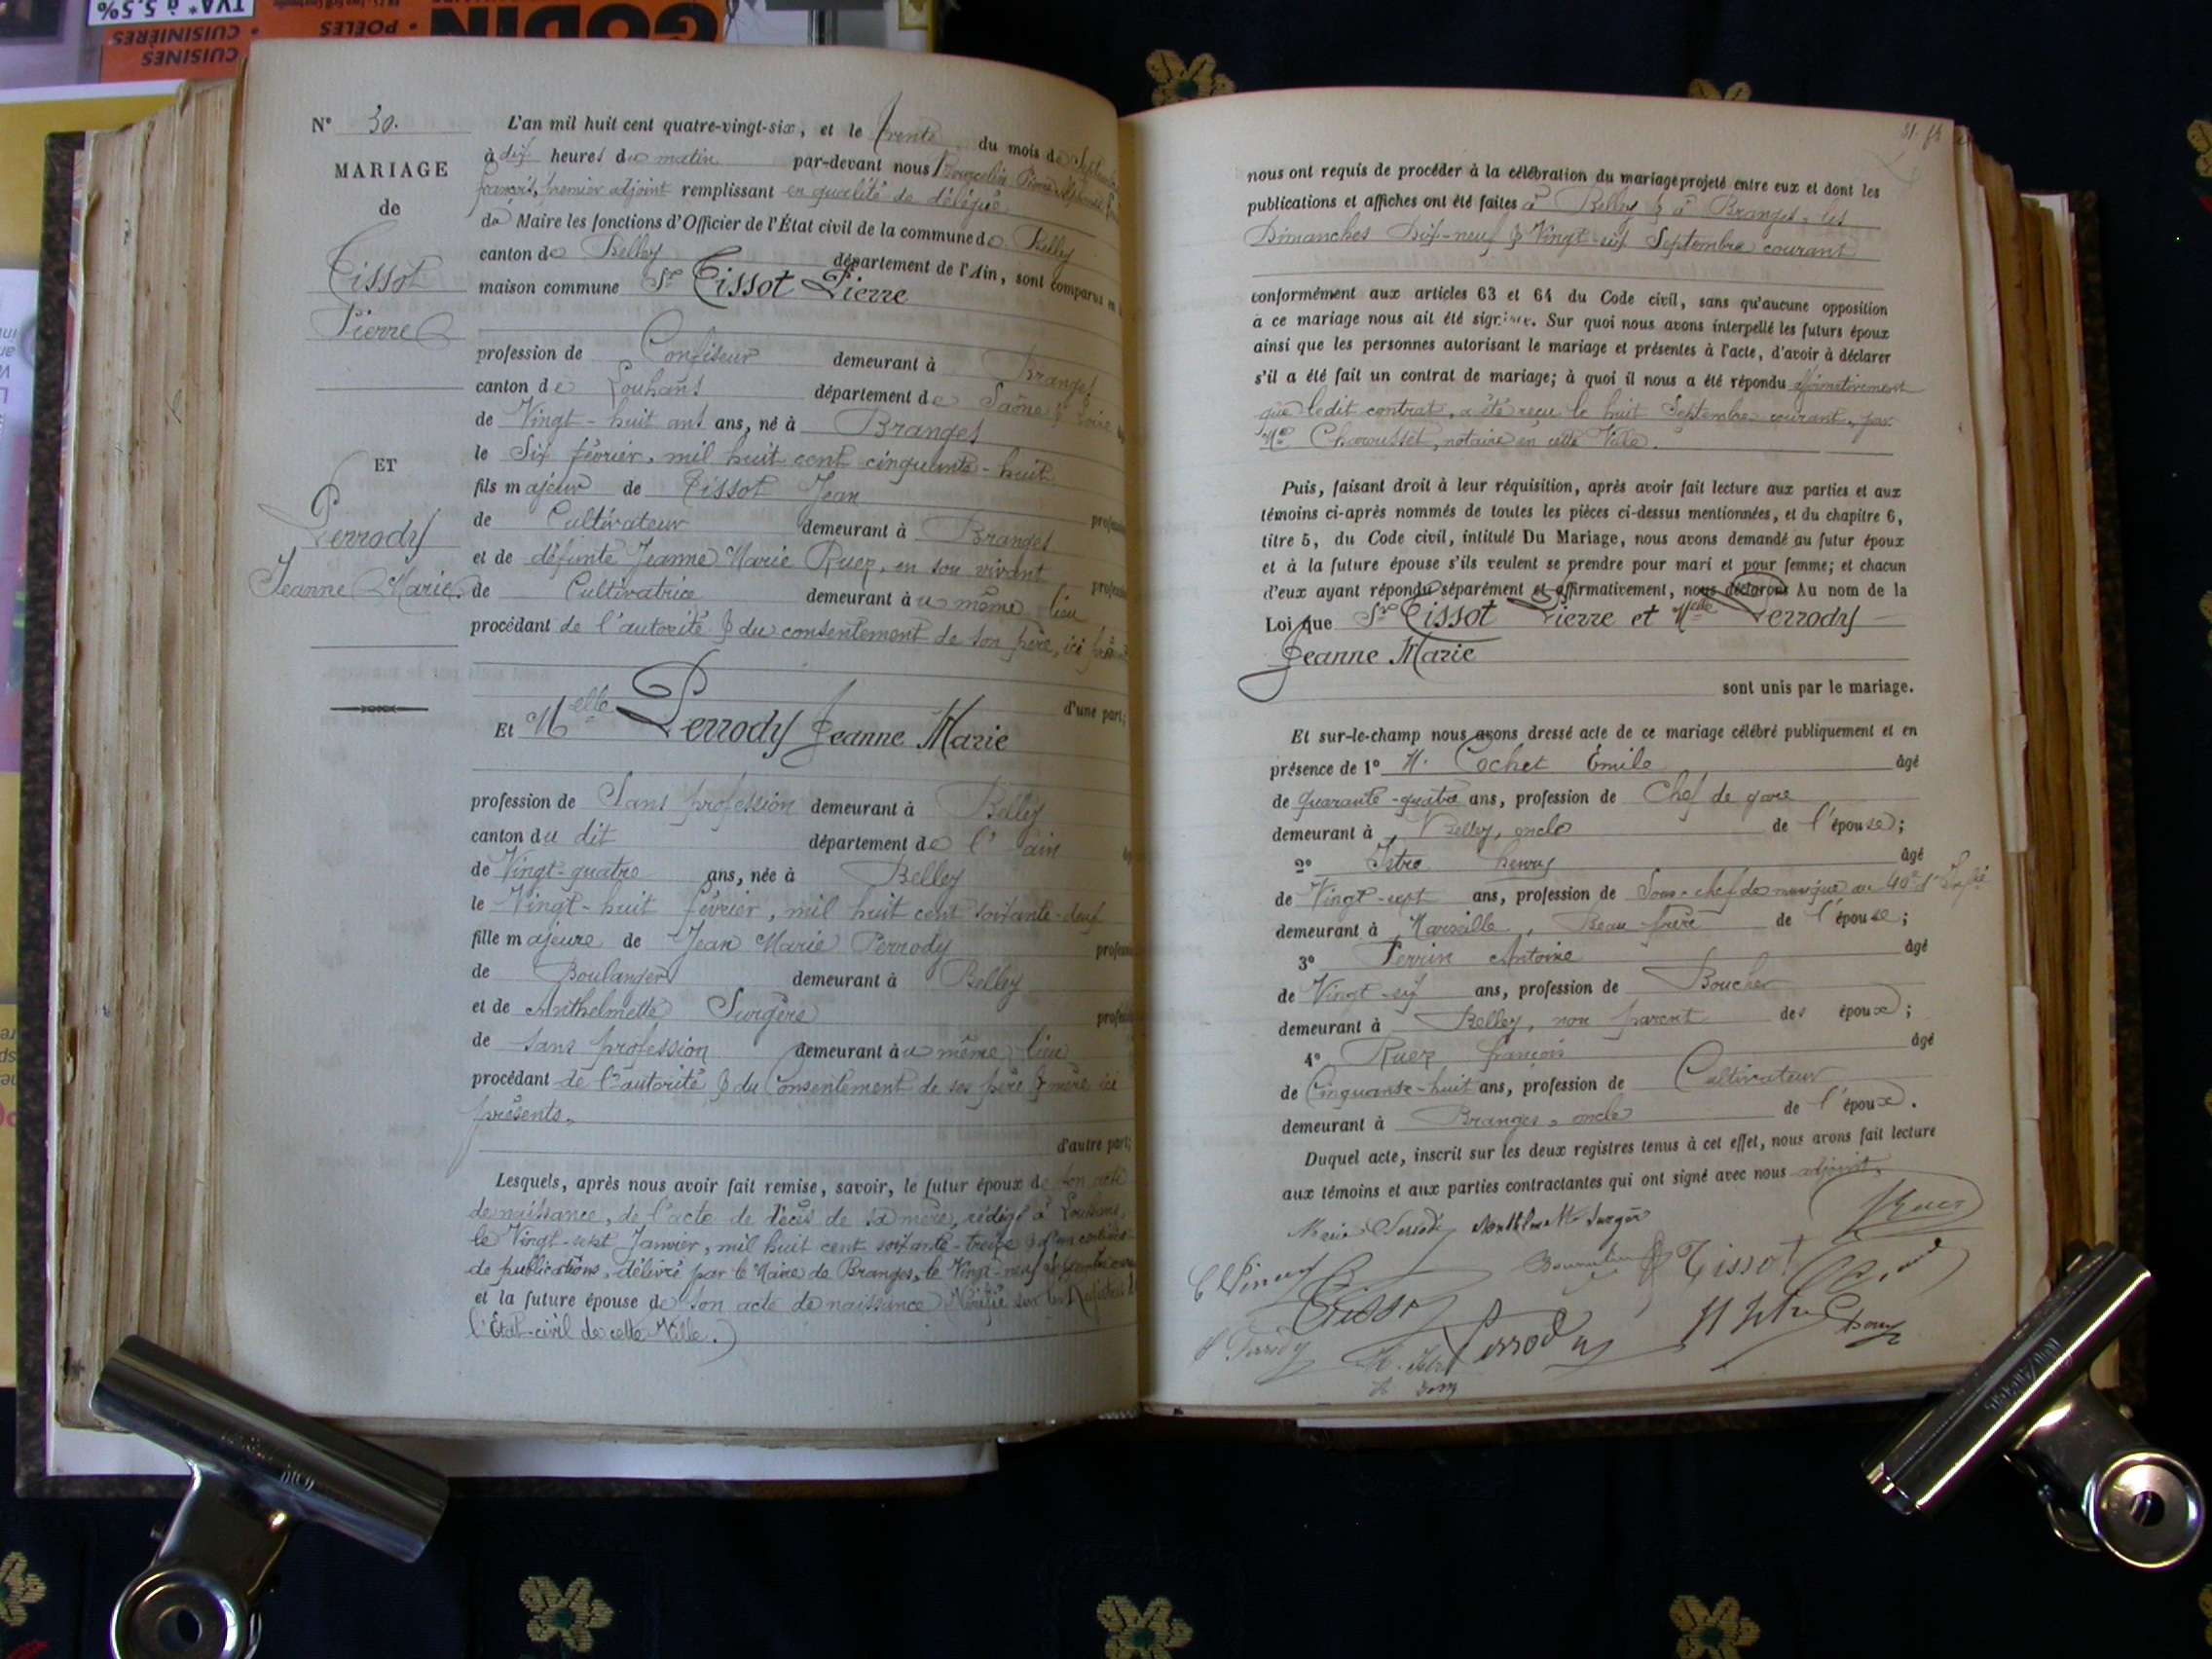 TVA* à 5,5%
CUISINIÈRES
CUISINES
• POÊLES
GODIN
N° 30.
MARIAGE
de
Tissot
Pierre
ET
Perrody
Jeanne Marie.
L'an mil huit cent quatre-vingt-six, et le trente du mois de Septembre
à dix heures du matin par-devant nous
françois, premier adjoint remplissant en qualité de délégué
du Maire les fonctions d'Officier de l'État civil de la commune de Belley
canton de Belley département de l'Ain, sont comparus en la
maison commune Sr Tissot Pierre
profession de Confiseur demeurant à Branges
canton de Louhans département de Saône & Loire
de Vingt-huit ans ans, né à Branges
le Six février, mil huit cent cinquante-huit
fils majeur de Tissot Jean
de Cultivateur demeurant à Branges
et de défunte Jeanne Marie Ruez, en son vivant
de Cultivatrice demeurant au même lieu
procédant de l'autorité & du consentement de son père, ici présent
d'une part;
Et Melle Perrody Jeanne Marie
profession de Sans profession demeurant à Belley
canton du dit département de l'ain
de Vingt-quatre ans, née à Belley
le Vingt-huit février, mil huit cent soixante-deux
fille majeure de Jean Marie Perrody
de Boulanger demeurant à Belley
et de Anthelmette Surgère
de sans profession demeurant au même lieu
procédant de l'autorité & du Consentement de ses père & mère ici
présents.
d'autre part;
Lesquels, après nous avoir fait remise, savoir, le futur époux de son acte
de naissance, de l'acte de décès de sa mère, rédigé à Louhans,
le Vingt-sept Janvier, mil huit cent soixante-treize & d'un certificat
de publications, délivré par le Maire de Branges, le Vingt-neuf Septembre
et la future épouse de son acte de naissance (Vérifié sur les Registres de
l'État-civil de cette Ville.)
nous ont requis de procéder à la célébration du mariage projeté entre eux et dont les
publications et affiches ont été faites à Belley & à Branges, les
Dimanches Dix-neuf & Vingt-six Septembre courant
conformément aux articles 63 et 64 du Code civil, sans qu'aucune opposition
à ce mariage nous ait été signifiée. Sur quoi nous avons interpellé les futurs époux
ainsi que les personnes autorisant le mariage et présentes à l'acte, d'avoir à déclarer
s'il a été fait un contrat de mariage; à quoi il nous a été répondu affirmativement
que ledit contrat, a été reçu le huit Septembre courant, par
Me Charousset, notaire en cette Ville.
Puis, faisant droit à leur réquisition, après avoir fait lecture aux parties et aux
témoins ci-après nommés de toutes les pièces ci-dessus mentionnées, et du chapitre 6,
titre 5, du Code civil, intitulé Du Mariage, nous avons demandé au futur époux
et à la future épouse s'ils veulent se prendre pour mari et pour femme; et chacun
d'eux ayant répondu séparément et affirmativement, nous déclarons Au nom de la
Loi que Sr Tissot Pierre et Melle Perrody
Jeanne Marie
sont unis par le mariage.
Et sur-le-champ nous avons dressé acte de ce mariage célébré publiquement et en
présence de 1° M. Cochet Émile âgé
de quarante-quatre ans, profession de Chef de gare
demeurant à Belley, oncle de l'épouse;
2° Istre henry âgé
de Vingt-sept ans, profession de Sous-chef de musique au 40e d'Infie
demeurant à Marseille, Beau frère de l'épouse;
3° Perrin Antoine âgé
de Vingt-six ans, profession de Boucher
demeurant à Belley, non parent des époux;
4° Ruez françois âgé
de Cinquante-huit ans, profession de Cultivateur
demeurant à Branges, oncle de l'époux.
Duquel acte, inscrit sur les deux registres tenus à cet effet, nous avons fait lecture
aux témoins et aux parties contractantes qui ont signé avec nous adjoint.
Ruez
Tissot
Tissot
Perrody